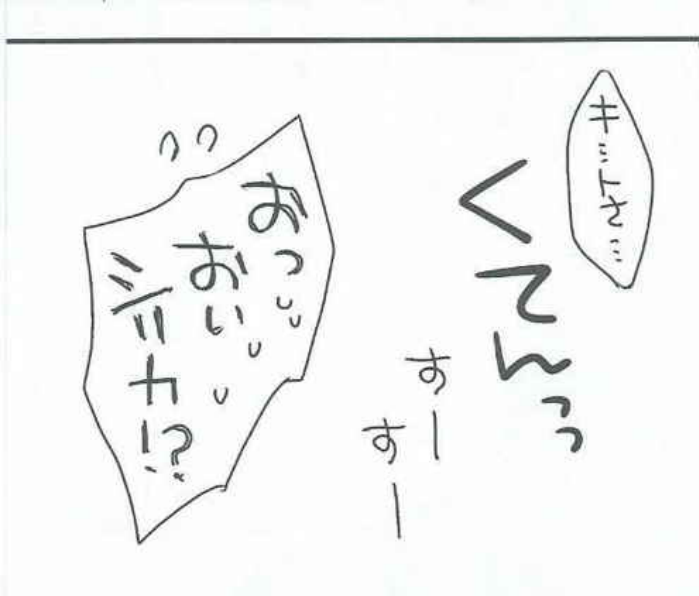 キ…トさ…
くてんっっ
すー
すー
おっ
おい
シリカ!?